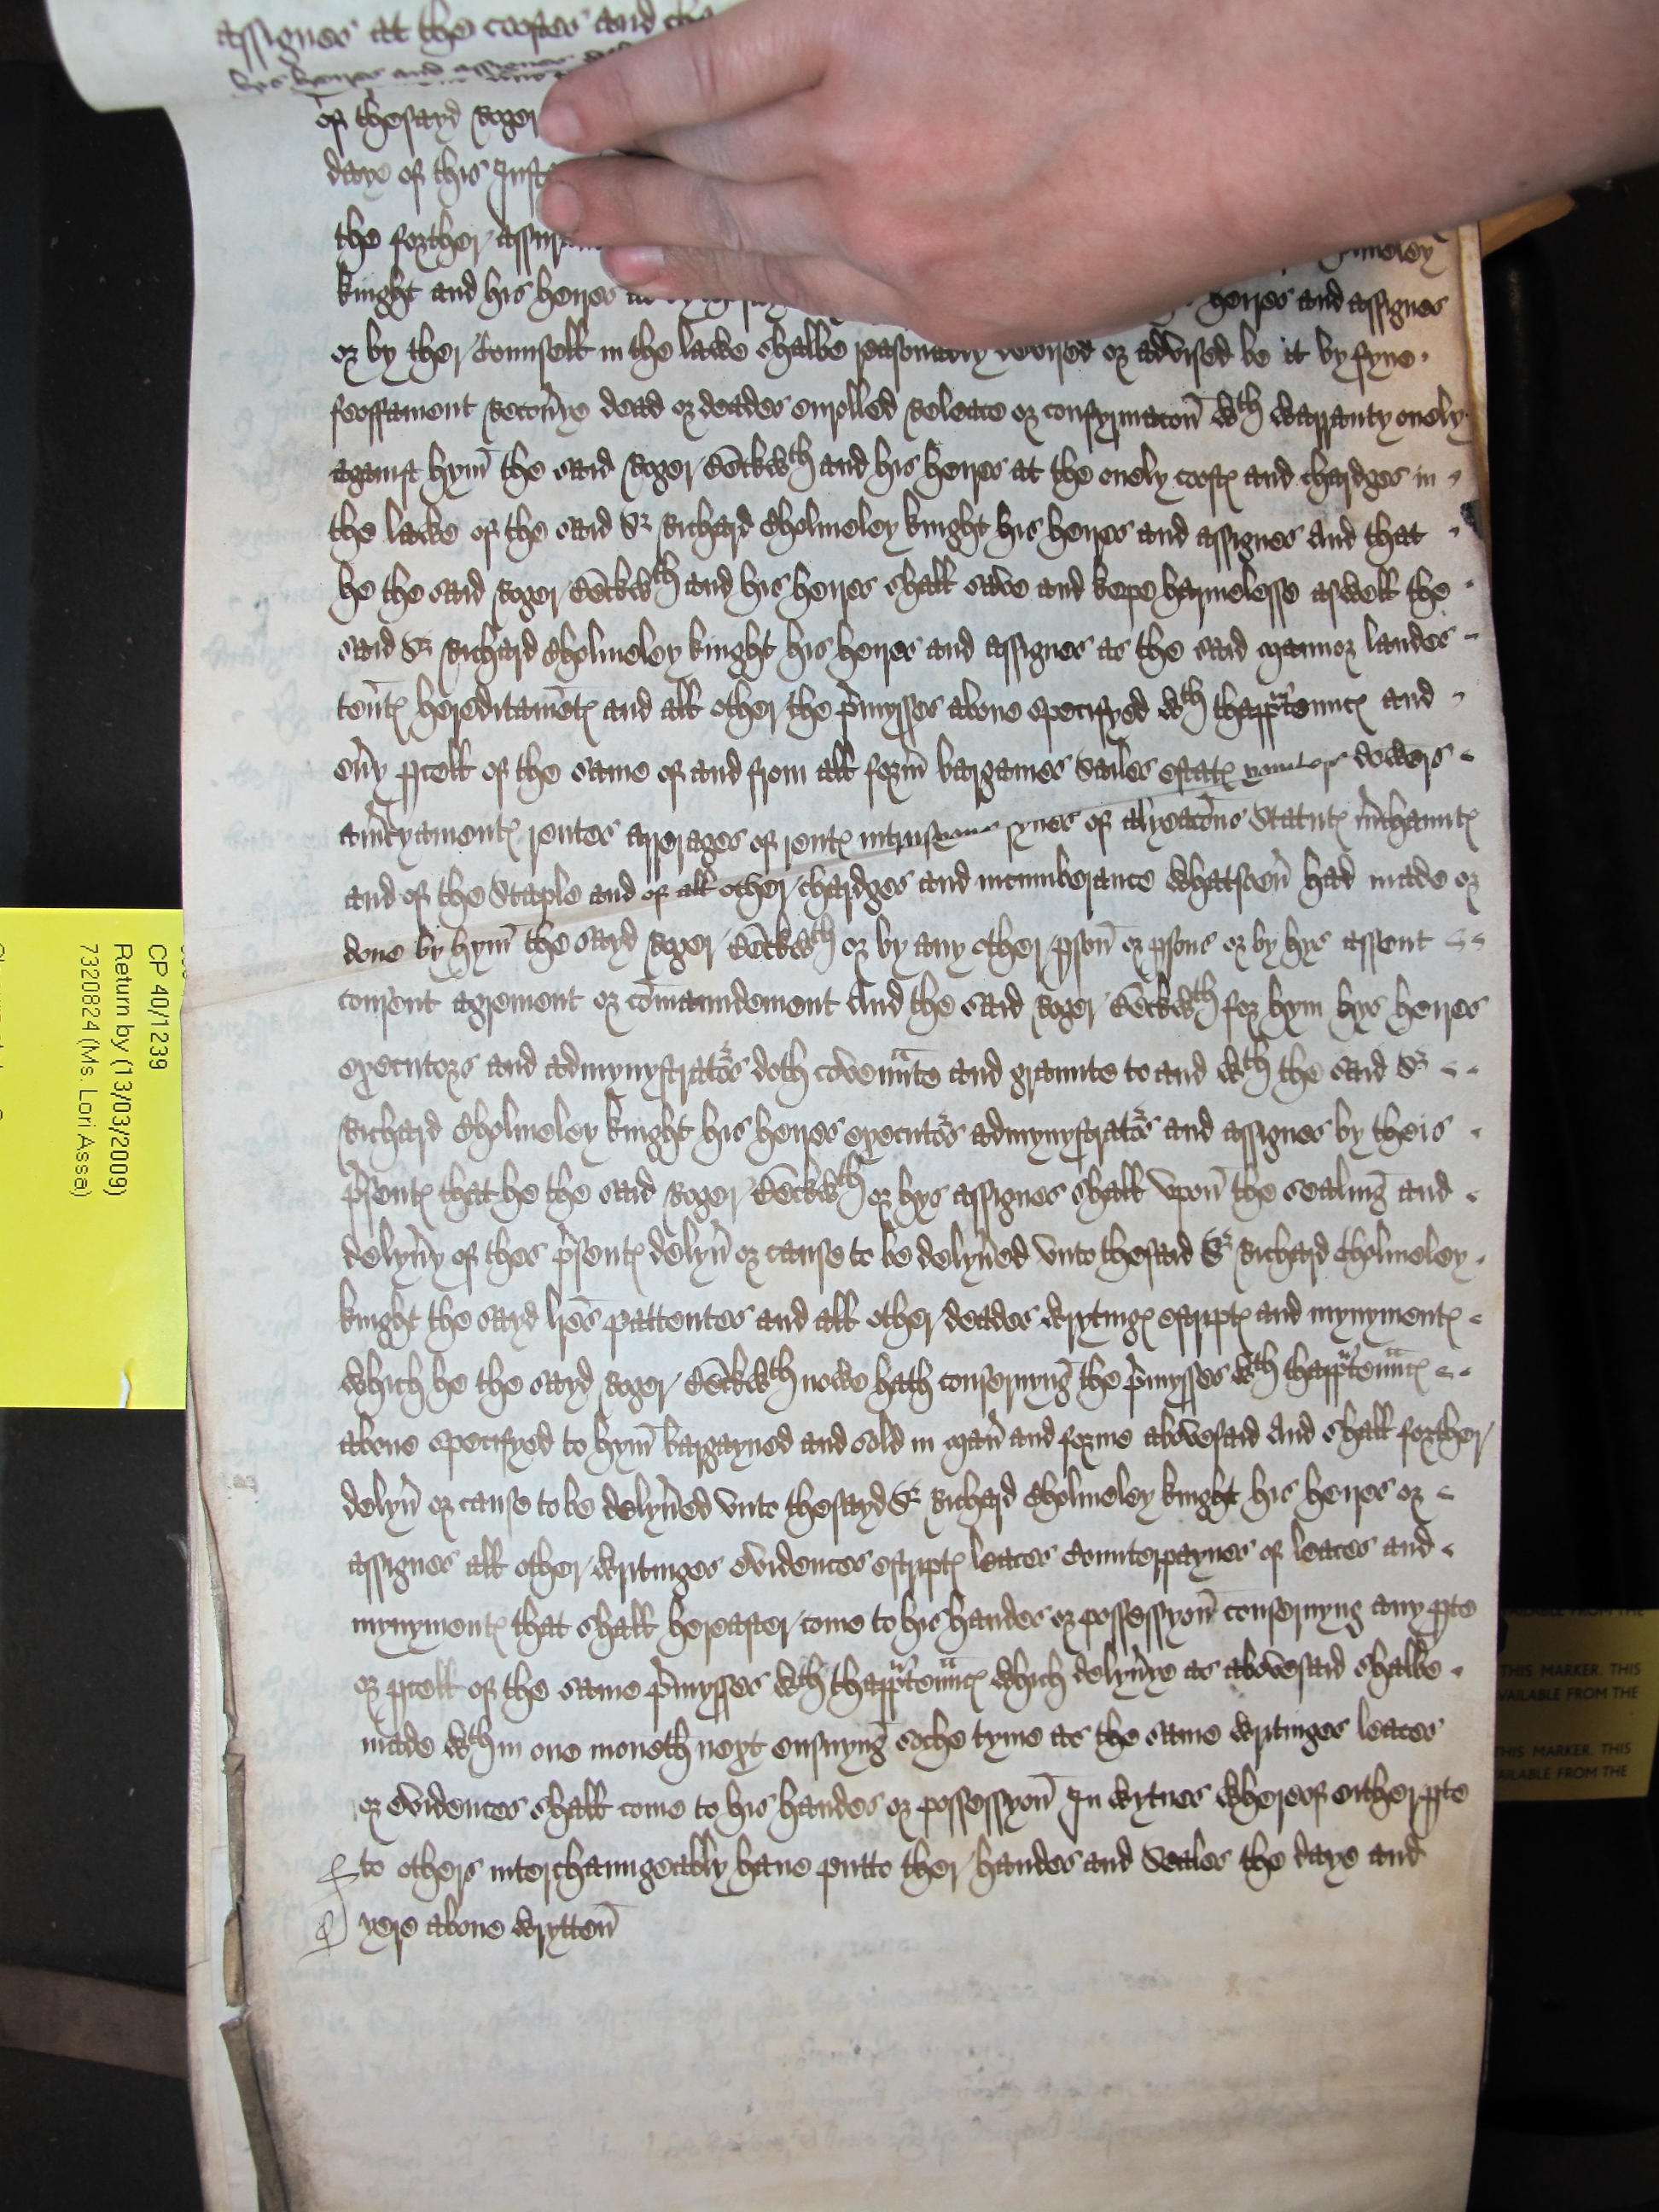 assignes at the costes and cha
his heires and assignes
of thesayd Roger
daye of this Insta
the forther assura
meley
knight and his heires as by heires and assignes
or by ther Counsell in the lawe shalbe reasonably devised or advised be it by fyne
feoffament Recoũye dead or deades enrolled Releace or confyrmacoñ wth warranty onely
against hym̃ the said Roger Bēckwth and his heires at the onely costꝭ and chardges in
the lawe of the said Sr Richard Cholmeley knight his heires and assignes And that
he the said Roger Bēckwth and his heires shall save and kepe harmelesse aswell the
said Sr Richard Cholmeley knight his heires and assignes as the said mannor landes
teñtꝭ hereditam̃etꝭ and all other the p̃mysses above specifyed wth thapp̃tenncꝭ and
eũy p̱cell of the same of and from all form̃ bargaines Sailes estatꝭ dowers
am̃cyamentꝭ rentes arrerages of rentꝭ intrusyons fynes of alyeacõns Statutꝭ m̃chauntꝭ
and of the Staple and of all other chardges and incumberance whatsoeũ had made or
done by hym̃ the sayd Roger Bēckwth or by any other p̱son̄ or p̱sons or by hys assent
consent agrement or cōmaundement And the said Roger Bēckwth for hym hys heires
executors and admynystratõrs doth covenãnte and graunte to and wth the said Sr
Richard Cholmeley knight his heires executõrs admynystratõrs and assignes by theis
p̃sentꝭ that he the said Roger Bēckwth or hys assignes shall upon̄ the sealing̃ and
delyũy of thes p̃sentꝭ delyũ or cause to be delyũed unto thesaid Sr Richard Cholmeley
knight the sayd lr̃es pattentes and all other deades wrytingꝭ escriptꝭ and mynymentꝭ
which he the sayd Roger Bēckwth nowe hath consernyng̃ the p̃mysses wth thapp̃tenncꝭ
above specifyed to hym̃ bargayned and sold in mañ and forme abovesaid And shall forther
delyũ or cause to be delyũed unto thesayd Sr Richard Cholmeley knight his heires or
assignes all other writinges evidences escriptꝭ leaces Counterpaynes of leaces and
mynymentꝭ that shall hereafter come to his handes or possessyon̄ consernyng any p̱te
or p̱cell of the same p̃mysses wth thapp̃tenncꝭ which delyũye as abovesaid shalbe
made wth in one moneth next ensuyng̃ soche tyme as the same writinges leaces
or evidences shall come to his handes or possessyon̄ In wytnes whereof either p̱te
to others interchaungeably have putte ther handes and Seales the daye and
yere above wrytten̄
CP 40/1239
Return by (13/03/2009)
7320824 (Ms. Lori Asse)
AILABLE FROM THE
THIS MARKER. THIS
VAILABLE FROM THE
THIS MARKER. THIS
AILABLE FROM THE